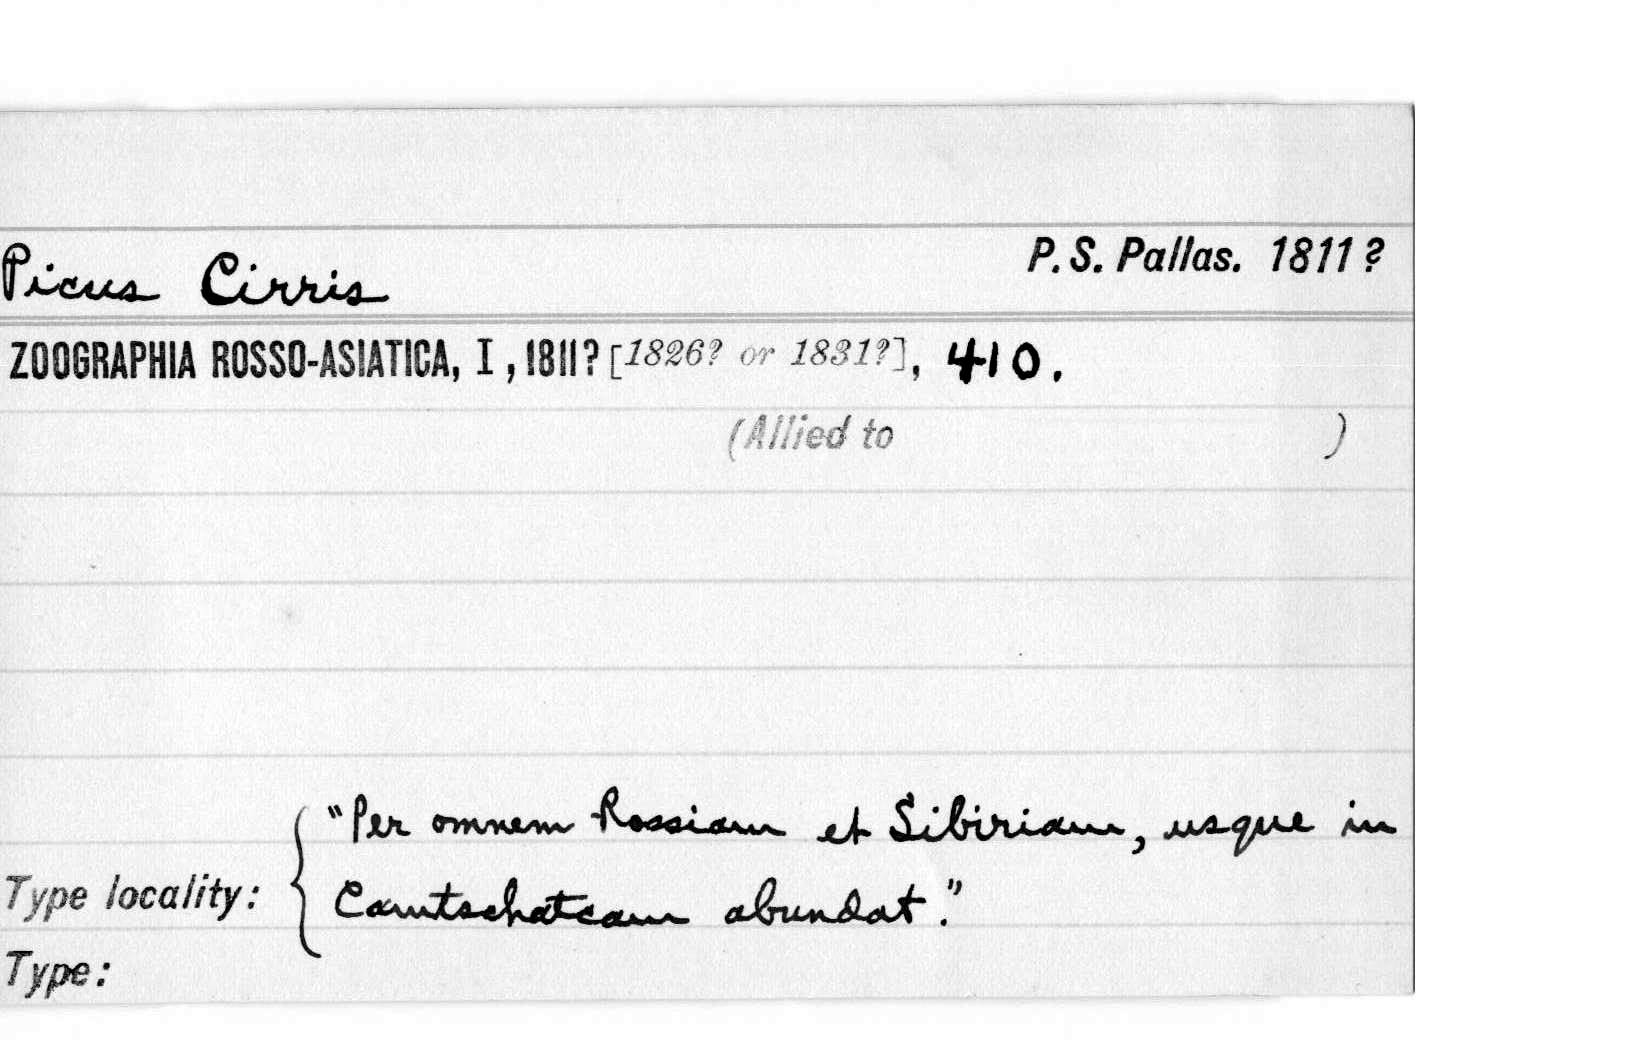 Picus Cirris
P. S. Pallas. 1811?
ZOOGRAPHIA ROSSO-ASIATICA, I, 1811? [1826? or 1831?], 410.
(Allied to )
"Per omnem Rossiam et Sibiriam, usque in
Camtschatcam abundat."
Type locality:
Type: